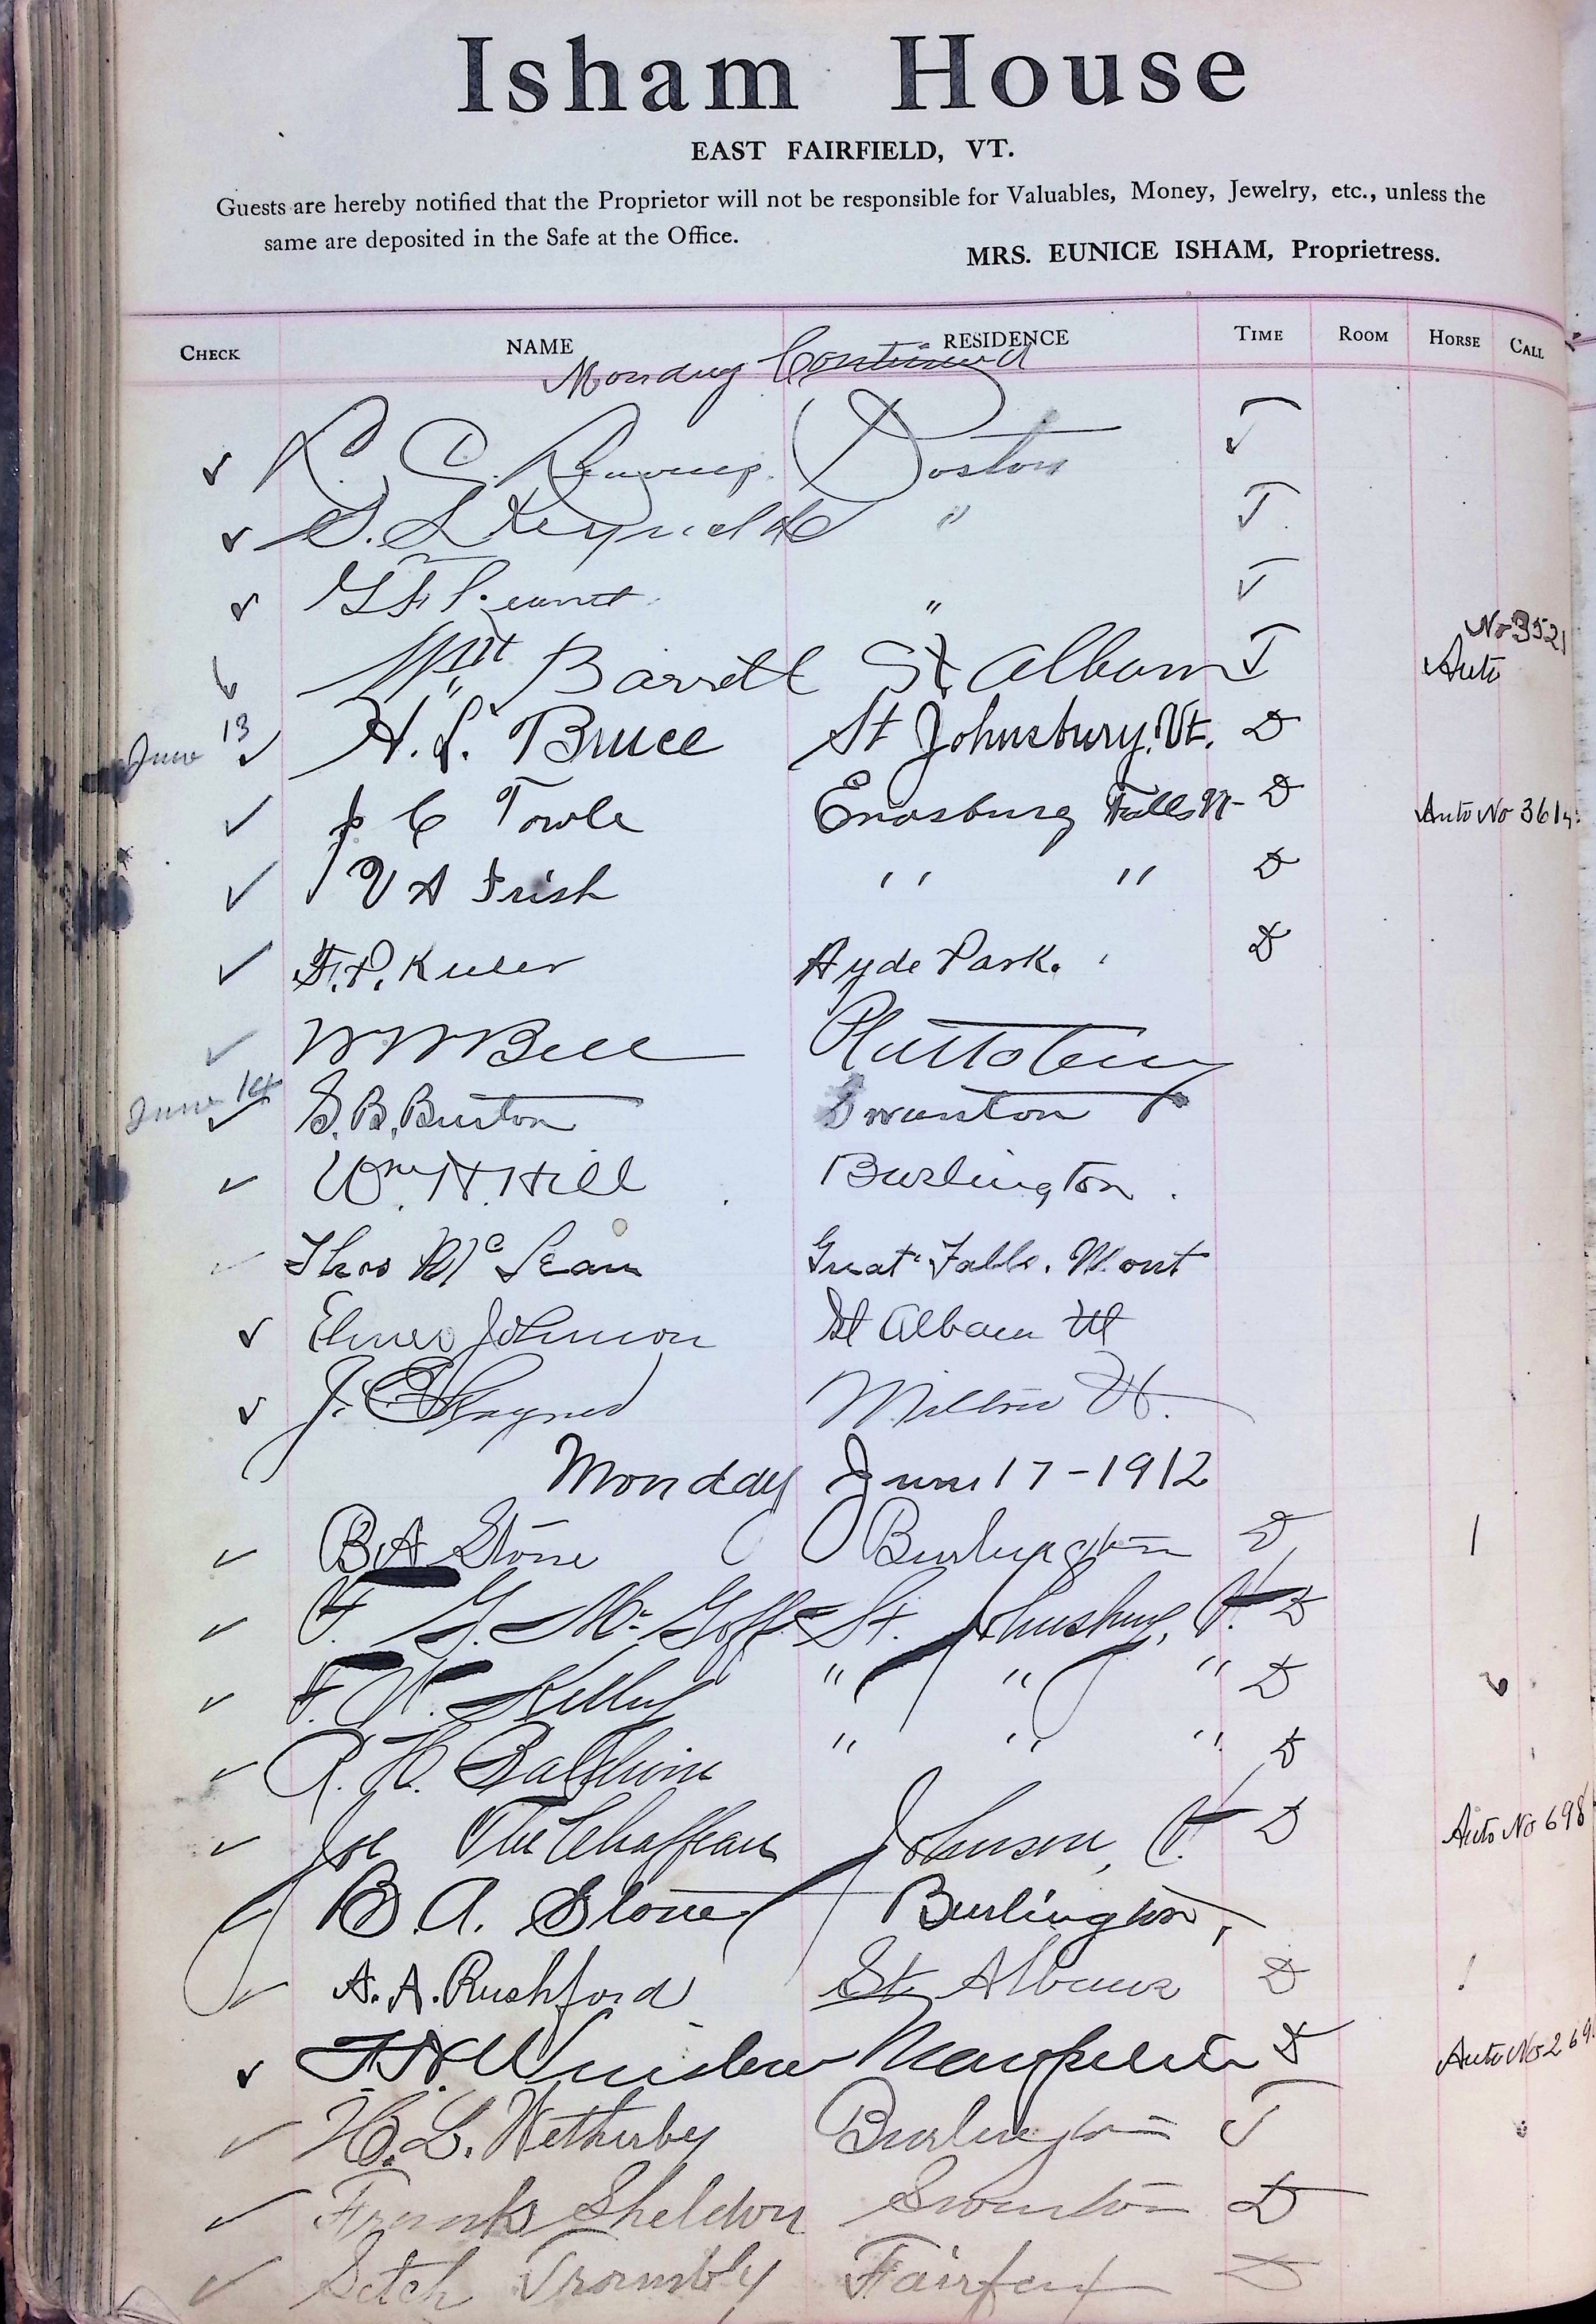 Isham House
EAST FAIRFIELD, VT.
Guests are hereby notified that the Proprietor will not be responsible for Valuables, Money, Jewelry, etc., unless the
same are deposited in the Safe at the Office.
MRS. EUNICE ISHAM, Proprietress.
CHECK NAME RESIDENCE TIME ROOM HORSE CALL
Monday Continued
R. C. Boston T
S. L. Reynolds " T
G F " T
No 3521
Wm Barrett St Albans T Auto
June 13 H. S. Bruce St Johnsbury, Vt. D
C Towle Enosburg Falls Vt D Auto No 361
V A Irish " " D
F. P. Hyde Park. " D
W W Bell
June 14 S. B. Burton Swanton
Wm H. Hill Burlington.
Thos Mc Great Falls. Mont
Elmer Johnson St Albans Vt
J. C. Milton Vt.
Monday June 17-1912
B A Stone Burlington D 1
F. G. Mc Goff St. Johnsbury, Vt. D
F. W. Kelley " " " D
R. H. Baldwin " " " D
Joe The Chaffeau Johnson, Vt. D Auto No 698
B. A. Stone Burlington,
A. A. Rushford St. Albans D
Winslow D Auto No 269
H. L. Wetherby Burlington T
Frank Sheldon Swanton D
Trombly Fairfax D